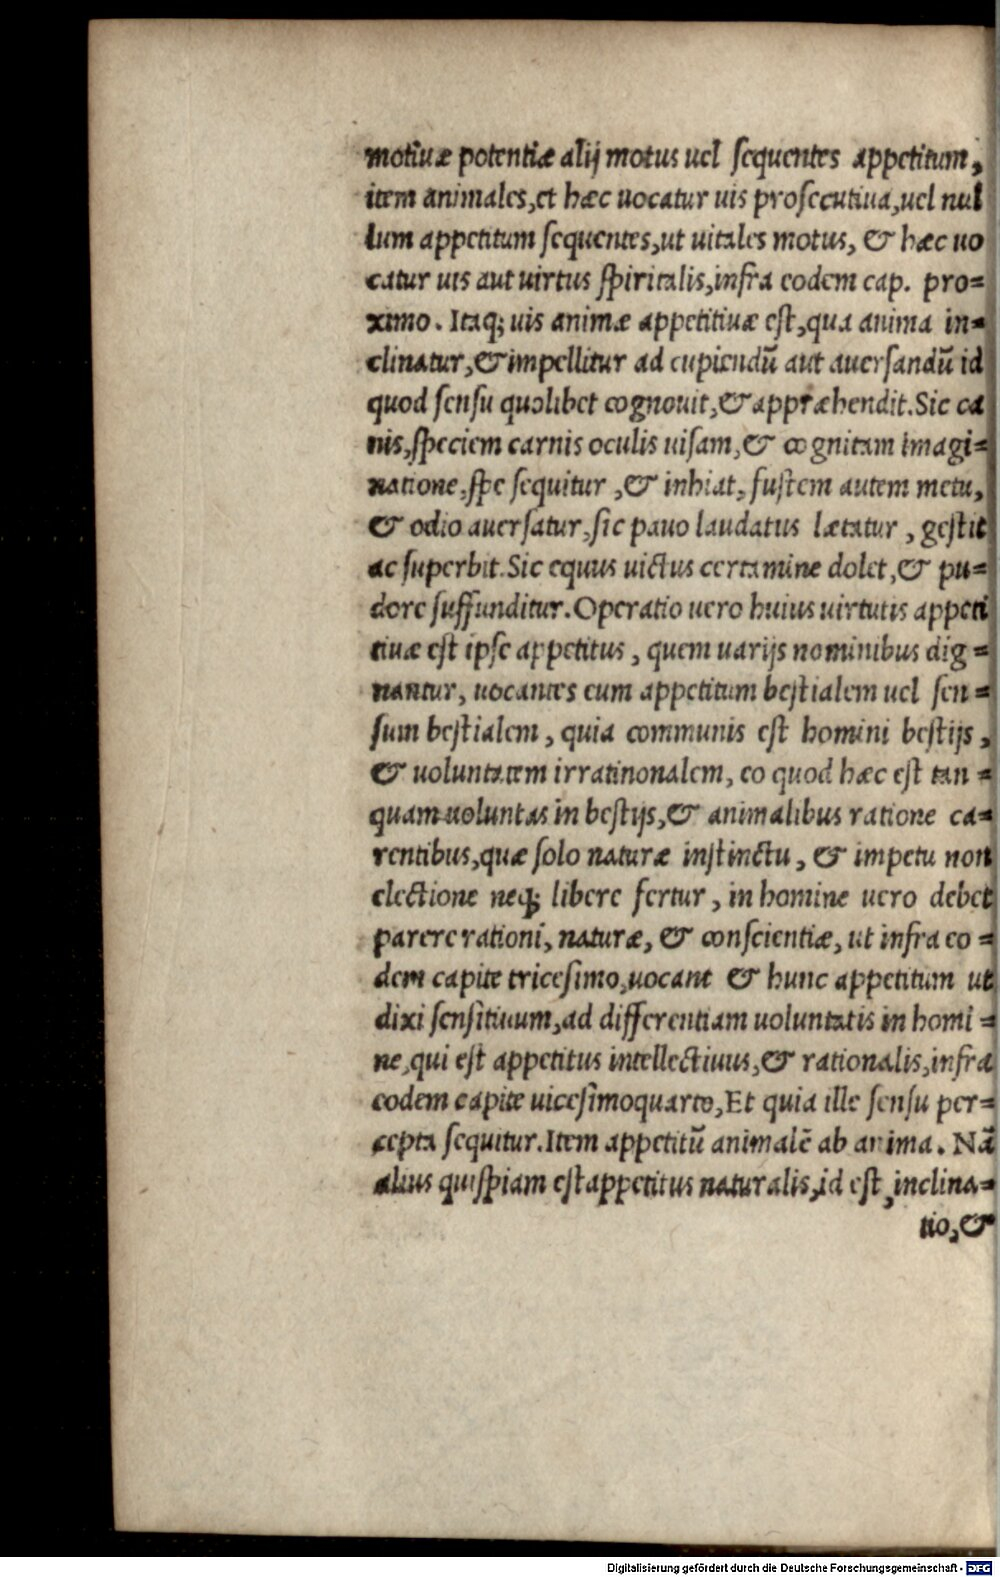 motiuæ potentiæ alij motus uel sequentes appetitum,
item animales, et hæc uocatur uis prosecutiua, uel nul
lum appetitum sequentes, ut uitales motus, & hæc uo
catur uis aut uirtus spiritalis, infra eodem cap. pro=
ximo. Itaq; uis animæ appetitiuæ est, qua anima in=
clinatur, & impellitur ad cupiendū aut auersandū id
quod sensu quolibet cognouit, & appræhendit. Sic ca
nis, speciem carnis oculis uisam, & cognitam imagi=
natione, spe sequitur, & inhiat, fustem autem metu,
& odio auersatur, sic pauo laudatus lætatur, gestit
ac superbit. Sic equus uictus certamine dolet, & pu=
dore suffunditur. Operatio uero huius uirtutis appeti
tiuæ est ipse appetitus, quem uarijs nominibus dig=
nantur, uocantes eum appetitum bestialem uel sen=
sum bestialem, quia communis est homini bestijs,
& uoluntatem irratinonalem, eo quod hæc est tan=
quam uoluntas in bestijs, & animalibus ratione ca=
rentibus, quæ solo naturæ instinctu, & impetu non
electione neq; libere fertur, in homine uero debet
parere rationi, naturæ, & conscientiæ, ut infra eo=
dem capite tricesimo, uocant & hunc appetitum ut
dixi sensitiuum, ad differentiam uoluntatis in homi=
ne, qui est appetitus intellectiuus, & rationalis, infra
eodem capite uicesimoquarto, Et quia ille sensu per=
cepta sequitur. Item appetitū animalē ab anima. Nā
alius quispiam est appetitus naturalis, id est, inclina=
tio, &
Digitalisierung gefördert durch die Deutsche Forschungsgemeinschaft - DFG